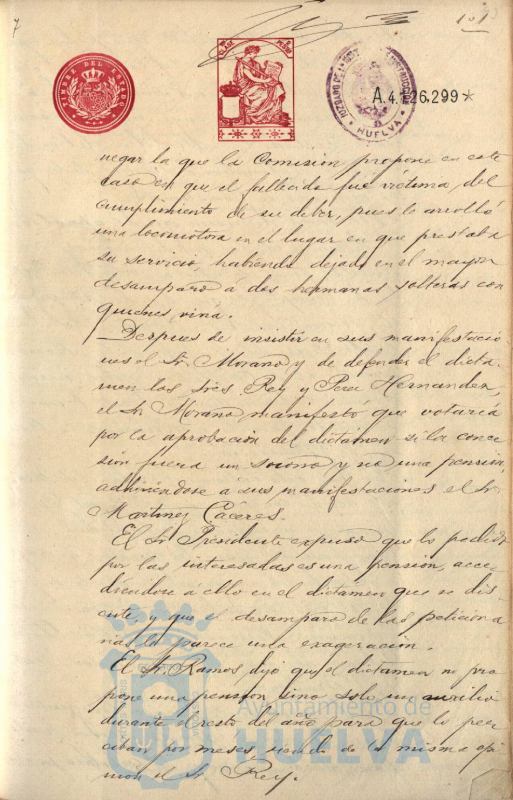 7
101
TIMBRE DEL ESTADO
CLASE
A.4.126.299*
HUELVA
negar la que la Comision propone en este
caso en que el fallecido fué víctima del
cumplimiento de su deber, pues le arrolló
una locomotora en el lugar en que prestaba
su servicio habiendo dejado en el mayor
desamparo á dos hermanas solteras con
quienes vivía.
Despues de insistir en sus manifestacio
nes el Sr. Morano y de defender el dicta-
men los Sres Rey y Perez Hernandez,
el Sr Morano manifestó que votaría
por la aprobacion del dictamen si la conce
sion fuera un socorro y no una pension,
adhiriendose á sus manifestaciones el Sr
Martinez Cáceres.
El Sr Presidente expuso que lo pedido
por las interesadas es una pensión, acce
diendose á ello en el dictamen que se dis
cute, y que el desamparo de las peticiona
rias le parece una exageracion.
El Sr. Ramos dijo que el dictamen no pro
pone una pension sino solo un auxilio
durante el resto del año para que lo per
ciban por meses siendo de la misma opi
nion el Sr Rey.
Ayuntamiento de
HUELVA